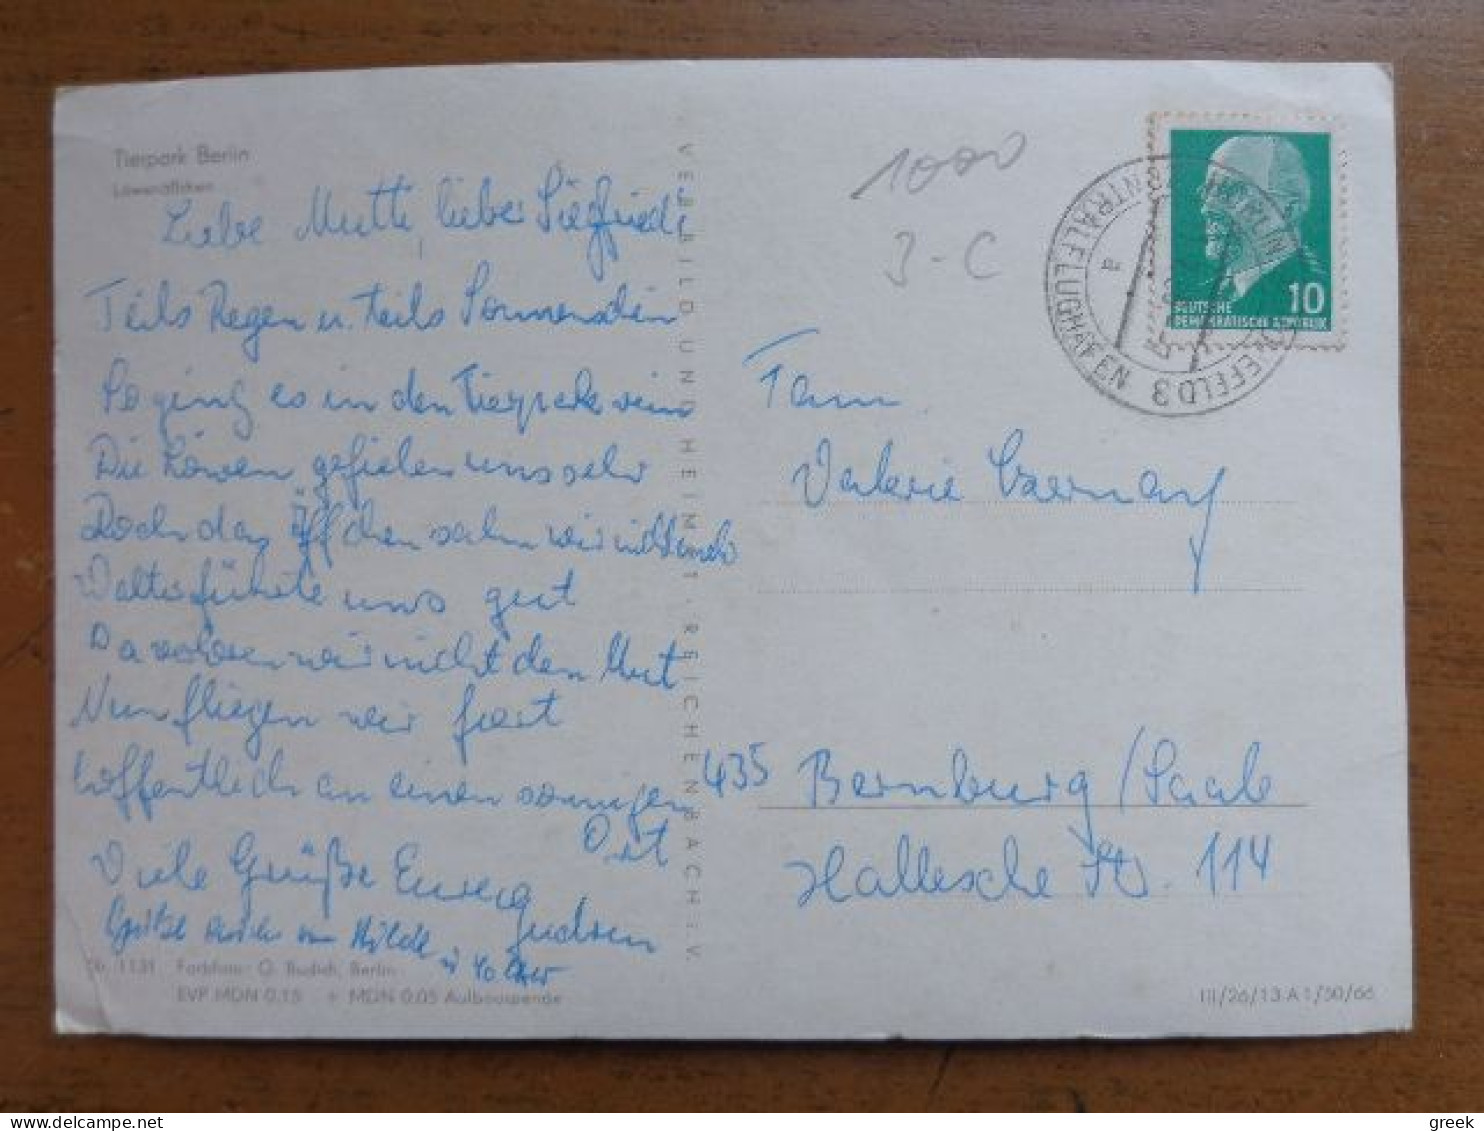 Tierpark Berlin
Löwenäffchen
Liebe Mutti, lieber Siegfried
Teils Regen u. teils Sonnenschein
So ging es in den Tierpark rein
Die Löwen gefielen uns sehr
Doch das Äffchen sahn wir nicht mehr
Walter führte uns gut
Da verloren wir nicht den Mut
Nun fliegen wir fort
hoffentlich an einen sonnigen
Ort
Viele Grüße Euere
Grüße auch von Hilde
u.
Nr. 1131 Farbfoto: O. Budich, Berlin
EVP MDN 0,15 + MDN 0,05 Aufbauspende
VEB BILD UND HEIMAT · REICHENBACH I. V.
1000
3-C
ZENTRALFLUGHAFEN
DEUTSCHE
DEMOKRATISCHE REPUBLIK
10
Fam.
Valerie Czernay
435 Bernburg/Saale
Hallesche Str. 114
III/26/13 A 1/50/66